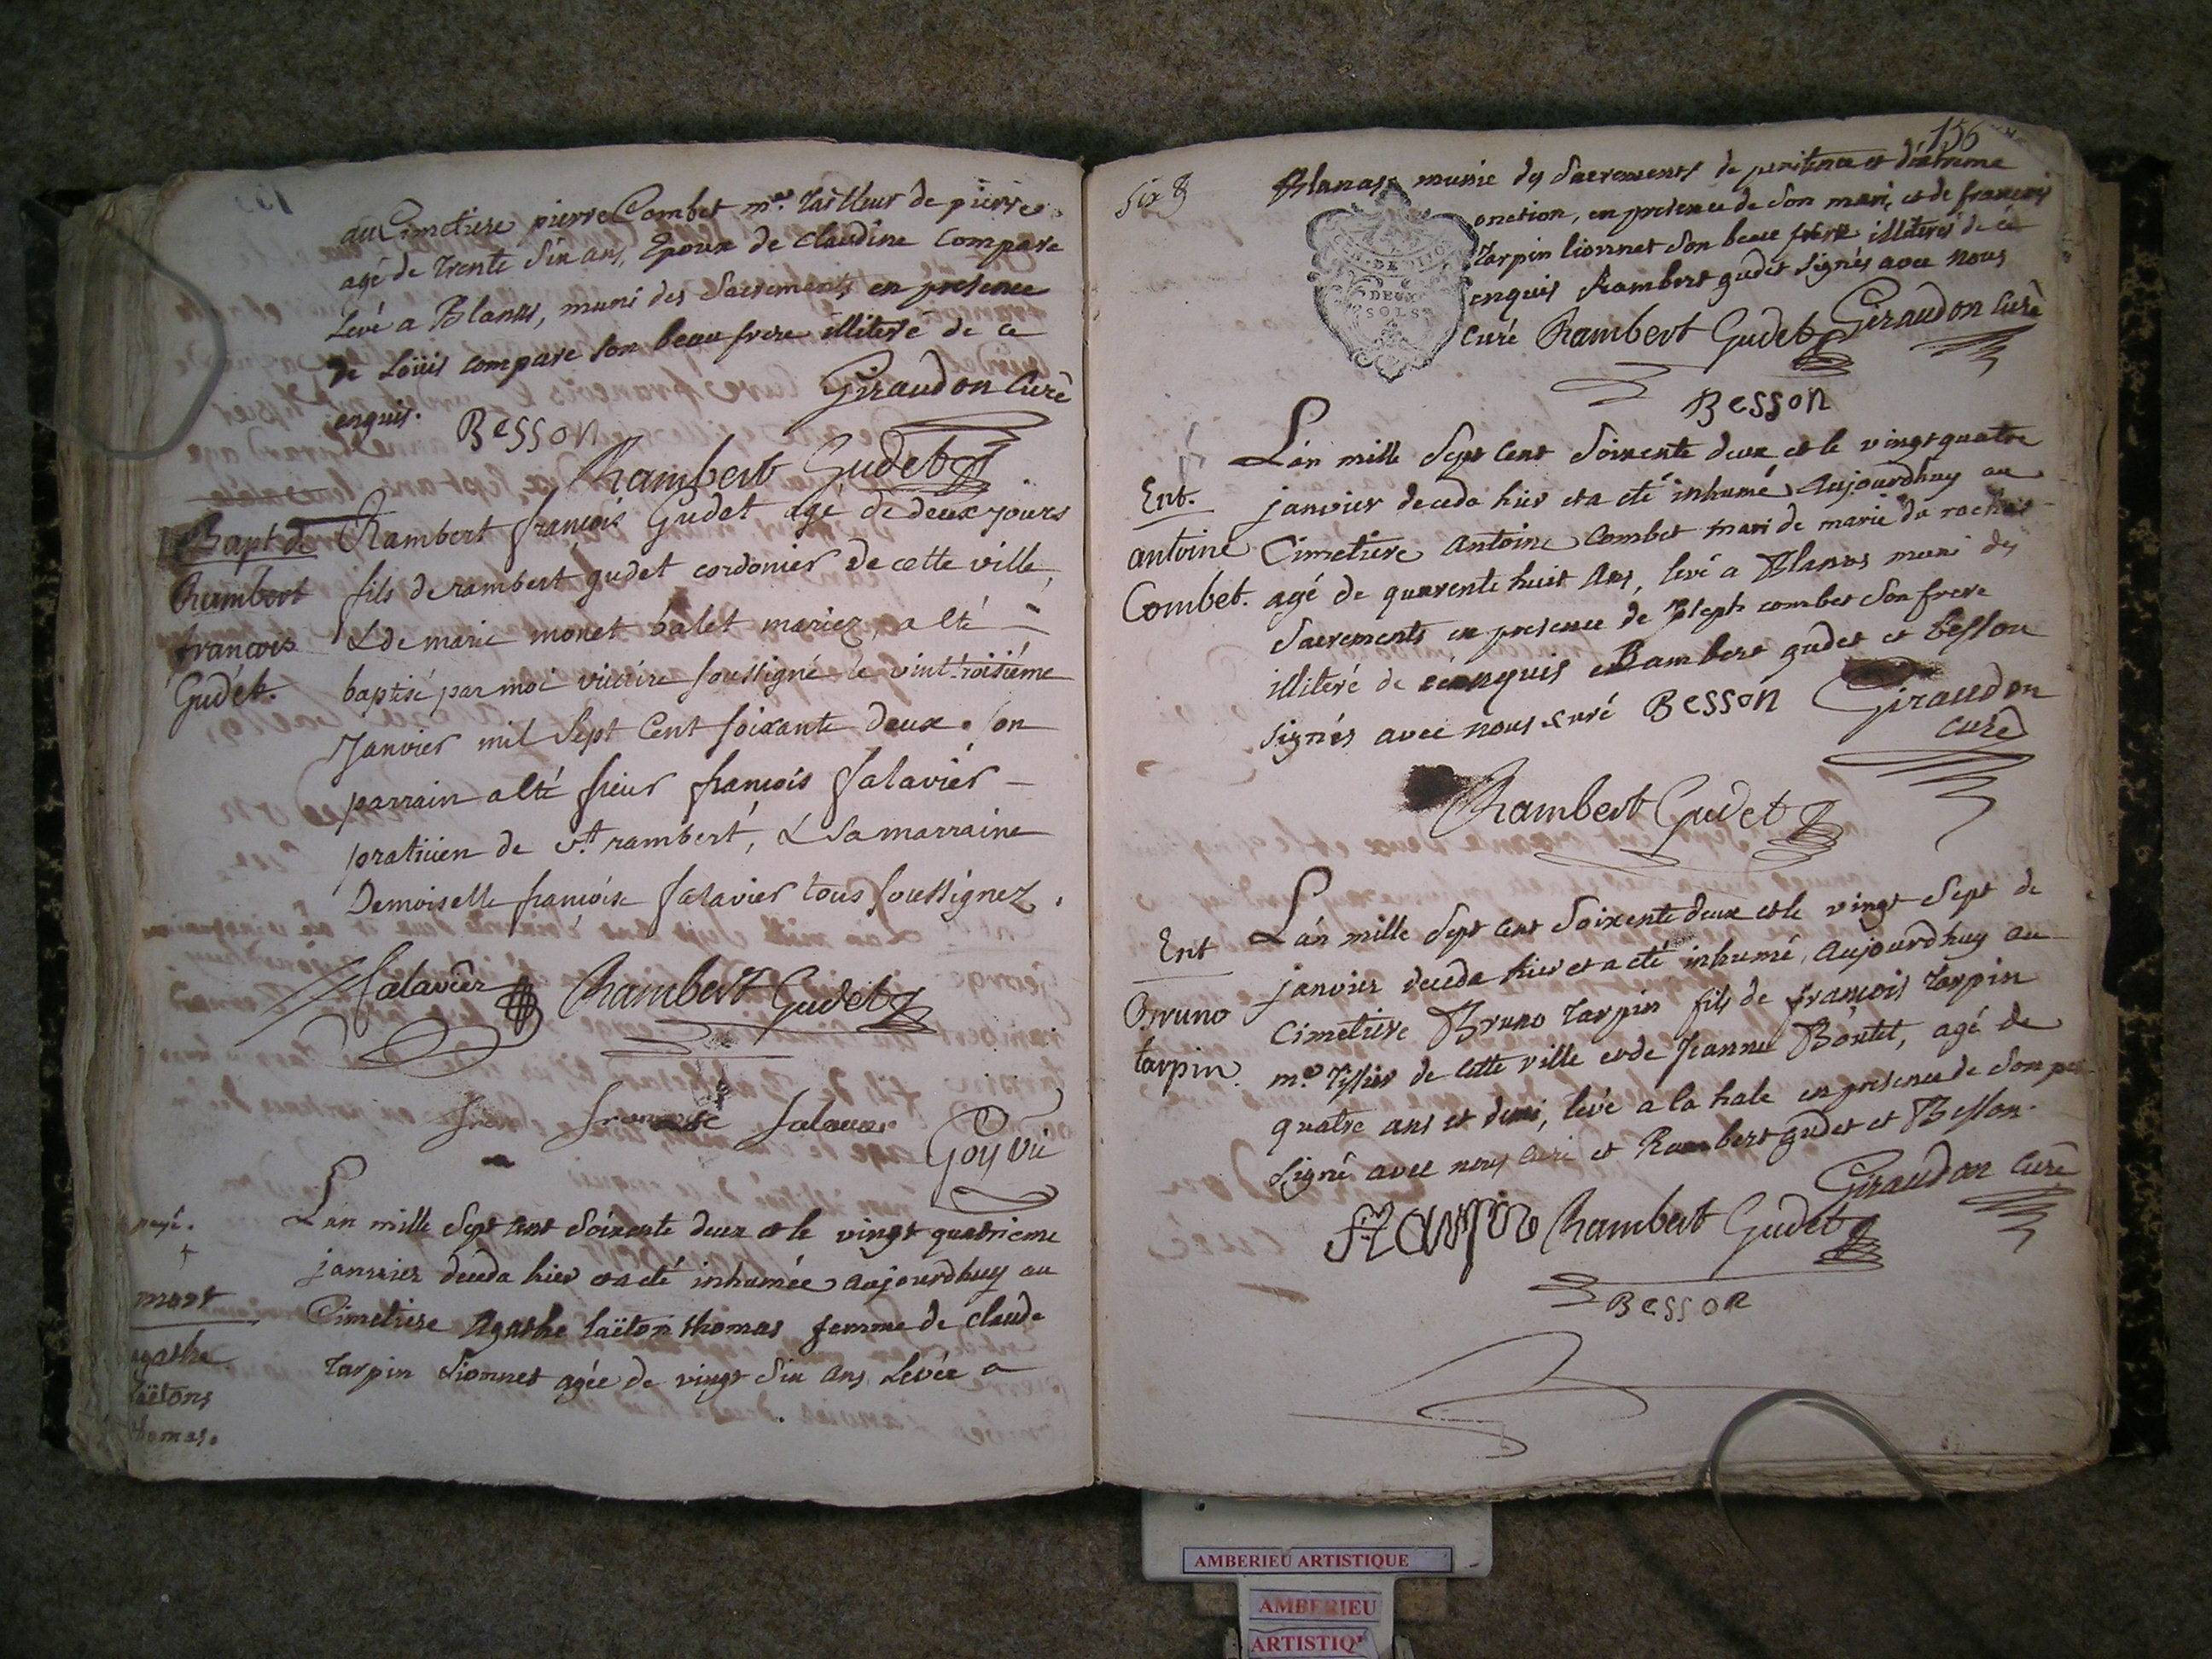 au Cimetiere pierre Combet m.re tailleur de pierre
agé de trente Six ans, Epoux de claudine Compare
Levé a Blanas, muni des Sacrements en presence
de Loüis compare son beau frere illiteré de ce
enquis.
Giraudon Curé
Besson
Rambert Gudet
Bapt de
Rambert
françois
Gudet.
Rambert françois Gudet agé de deux jours
fils de rambert gudet cordonier de cette ville,
& de marie monet balet mariez, a eté
baptisé par moi vicaire soussigné le vint-troisiéme
Janvier mil Sept Cent soixante deux. son
parrain a eté sieur françois salavier
praticien de st rambert, & sa marraine
Demoiselle françoise salavier tous soussignez.
Salavier Rambert Gudet
francoise salavier
Goy vic
payé.
mort
agathe
taëtons
thomas.
L'an mille Sept cent Soixente deux et le vingt quatrieme
janvier deceda hier et a eté inhumée aujourdhuy au
Cimetiere Agathe taëton thomas femme de claude
tarpin Lionnet agée de vingt Six ans Levée a
156
Six &
Blanas, munie des Sacrements de penitence et d'extreme
onction, en presence de son mari, et de françois
tarpin lionnet son beau frere illiterés de ce
enquis Rambert gudet signés avec nous
curé Rambert Gudet Giraudon Curé
GEN. DE DIJON
DEUX
SOLS
Besson
Ent.
antoine
Combet.
L'an mille Sept Cent Soixente deux et le vingt quatre
janvier deceda hier et a eté inhumé aujourdhuy au
Cimetiere Antoine Combet mari de marie du rachat
agé de quarente huit ans, levé a Blanas muni des
Sacrements en presence de Joseph combet son frere
illiteré de ce enquis et Rambert gudet et besson
signés avec nous curé Besson Giraudon
curé
Rambert Gudet
Ent
Bruno
tarpin.
L'an mille Sept cent Soixente deux et le vingt Sept de
janvier deceda hier et a eté inhumé, aujourdhuy au
Cimetiere Bruno tarpin fils de françois tarpin
m.e tissier de cette ville et de Jeanne Boutet, agé de
quatre ans et demi, levé a la hale en presence de son pere
signé avec nous curé et Rambert gudet et Besson.
Giraudon Curé
f tarpin Rambert Gudet
Besson
AMBERIEU ARTISTIQUE
AMBERIEU
ARTISTIQ